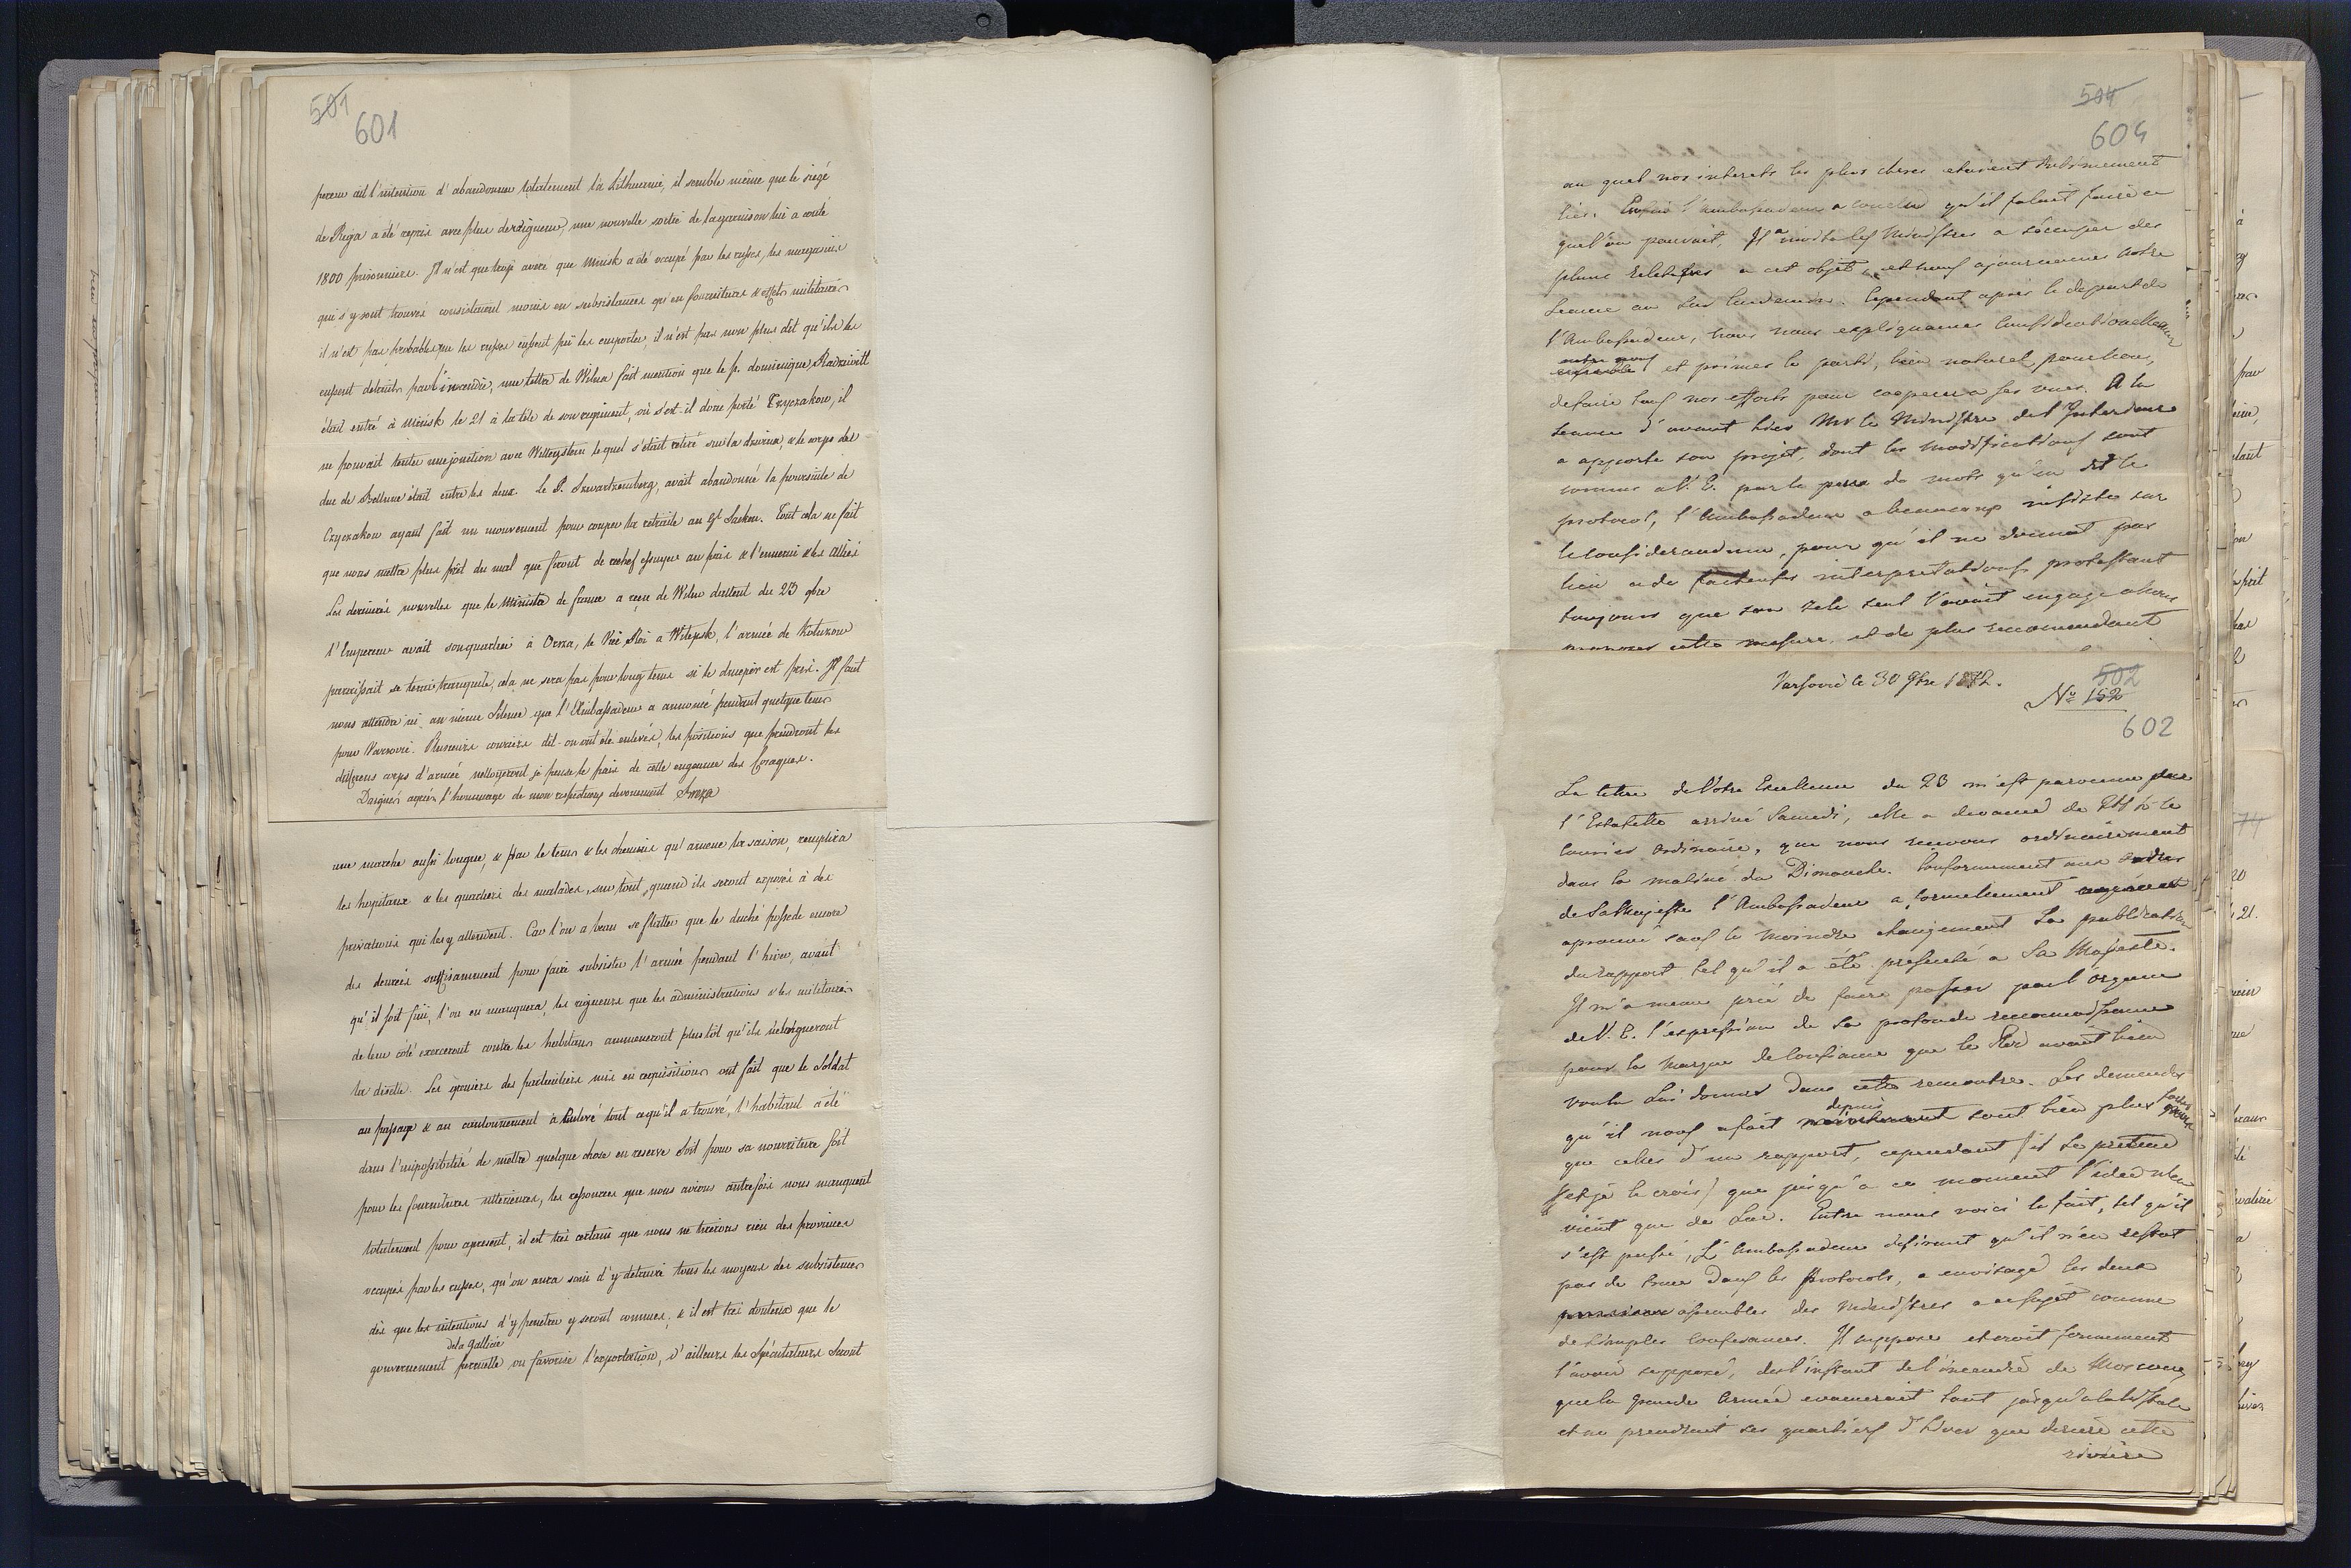 501
601
pereur ait l'intention d'abandonner totalement la Lithuanie, il semble même que le siege
de Riga a été repris avec plus de vigueur, une nouvelle sortie de la garnison lui a couté
1800 prisonniers. Il n'est que trop averé que Minsk a été occupé par les russes, les magasins
qui s'y sont trouvés consistaient moins en subsistances qu'en fournitures & effets militaires
il n'est pas probable que les russes eussent pû les emporter, il n'est pas non plus dit qu'ils les
eussent detruits par l'incendie, une lettre de Wilna fait mention que le p. dominique Radziwill
était entré à Minsk le 21 à la tête de son regiment, où s'est-il donc porté Czyczakow, il
ne pouvait tenter une jonction avec Wittgystein lequel s'était retiré sur la dzwina, & le corps del
duc de Bellune était entre les deux. Le P. Szwartzemberg, avait abandonné la poursuite de
Czyczakow ayant fait un mouvement pour couper la retraite au Gl Sacken. Tout cela ne fait
que nous mettre plus prêt du mal que feront de rechef essuyer au païs & l'ennemi & les alliés
Les dernieres nouvelles que le Ministre de france a reçu de Wilna dattent du 23 9bre
l'Empereur avait son quartier à Orsza, le Vice Roi a Witepsk, l'armée de Kotuzow
paraissait se tenir tranquile, cela ne sera pas pour long tems si le dnieper est pris. Il faut
nous attendre ici au même silence que l'Ambassadeur a annoncé pendant quelque tems
pour Varsovie. Plusieurs couriers dit-on ont été enlevés, les positions que prendront les
differens corps d'armée nettoyeront je pense le païs de cette engeance des Cosaques.
Daignés agréer l'hommage de mon respectueux devouement
une marche aussi longue, & par le tems & les chemins qu'amene la saison, remplira
les hopitaux & les quartiers des malades, sur tout, quand ils seront exposés à des
privations qui les y attendent. Car l'on a beau se flatter que le duché possede encore
des denrées suffisamment pour faire subsister l'armée pendant l'hiver, avant
qu'il soit fini, l'on en manquera, les rigueurs que les administrations & les militaires
de leur côté exerceront contre les habitans ammeneront plustôt qu'ils n'eloigneront
la disette. Les greniers des particuliers mis en requisition ont fait que le Soldat
au passage & au cantonnement à enlevé tout ce qu'il a trouvé, l'habitant a été
dans l'impossibilité de mettre quelque chose en reserve soit pour sa nourriture soit
pour les fournitures ulterieures, les ressources que nous avions autrefois nous manquent
totalement pour apresent, il est très certain que nous ne tirerons rien des provinces
occupés par les russes, qu'on aura soin d'y detruire tous les moyens des subsistences
dès que les intentions d'y penetrer y seront connues, & il est très douteux que le
de la Gallicie
gouvernement permette ou favorise l'exportation, d'ailleurs les Spéculateurs seront
504
604
au quel nos interets les plus chers etaient intimement
liés. Enfin l'ambassadeur a conclu qu'il falait faire ce
quel'on pouvait. Il a invité les Ministres a s'occuper des
plans relatifs a cet objet, et nous ajournames notre
seance au sur lendemain. Cependant après le depart de
l'Ambassadeur, nous nous expliquames confidentiellement
entre nous
et primes le parti, bien naturel pour nous,
de faire tous nos efforts pour cooperer a ses vues. A la
seance d'avant hier Mr le Ministre de l'Interieur
a apporté son projet, dont les modifications sont
connues a V. E. par le peu de mots qu'en dit le
protocol, l'ambassadeur a beaucoup insisté sur
le considerandum, pour qu'il ne donnat pas
lieu a de interpretations protestant
toujours que son zele seul l'avait engagé a
cette mesure, et de plus recomendant
Varsovie le 30 9bre 1812.
502
No 152
602
La lettre de Votre Excellence du 23 m'est parvenue par
l'Estafette arrivé Samedi, elle a devancé de le
courier ordinaire, que nous recevons ordinairement
dans la matiné du Dimanche. Conformement aux ordres
de Sa Majesté l'Ambassadeur a formellement
aprouvé sauf le moindre changement la publication
du rapport tel qu'il a été presenté a Sa Majesté.
Il m'a meme prié de faire passer par l'organe
de V. E. l'expression de sa profonde reconnoissance
pour la marque de confiance que le Roi avait bien
voulu lui donner dans cette rencontre. Les demandes
depuis
qu'il nous a fait sont bien plus
que celles d'un rapport, cependant il se pretend
(et je le crois) que jusqu'a ce moment l'idée n'en
vient que de Lui. Entre nous voici le fait, tel qu'il
s'est passé, L'ambassadeur desirant qu'il n'en restat
pas de trace dans les protocols, a envisagé les deux
assemblées des Ministres a ce sujet comme
de simples conferences. Il suppose et croit fermement
l'avoir supposé, des l'instant de l'incendie de Moscou,
que la grande Armée evacuerait tout jusqu'a la Vistule
et ne prendrait ses quartiers d'hiver que deriere cette
riviere